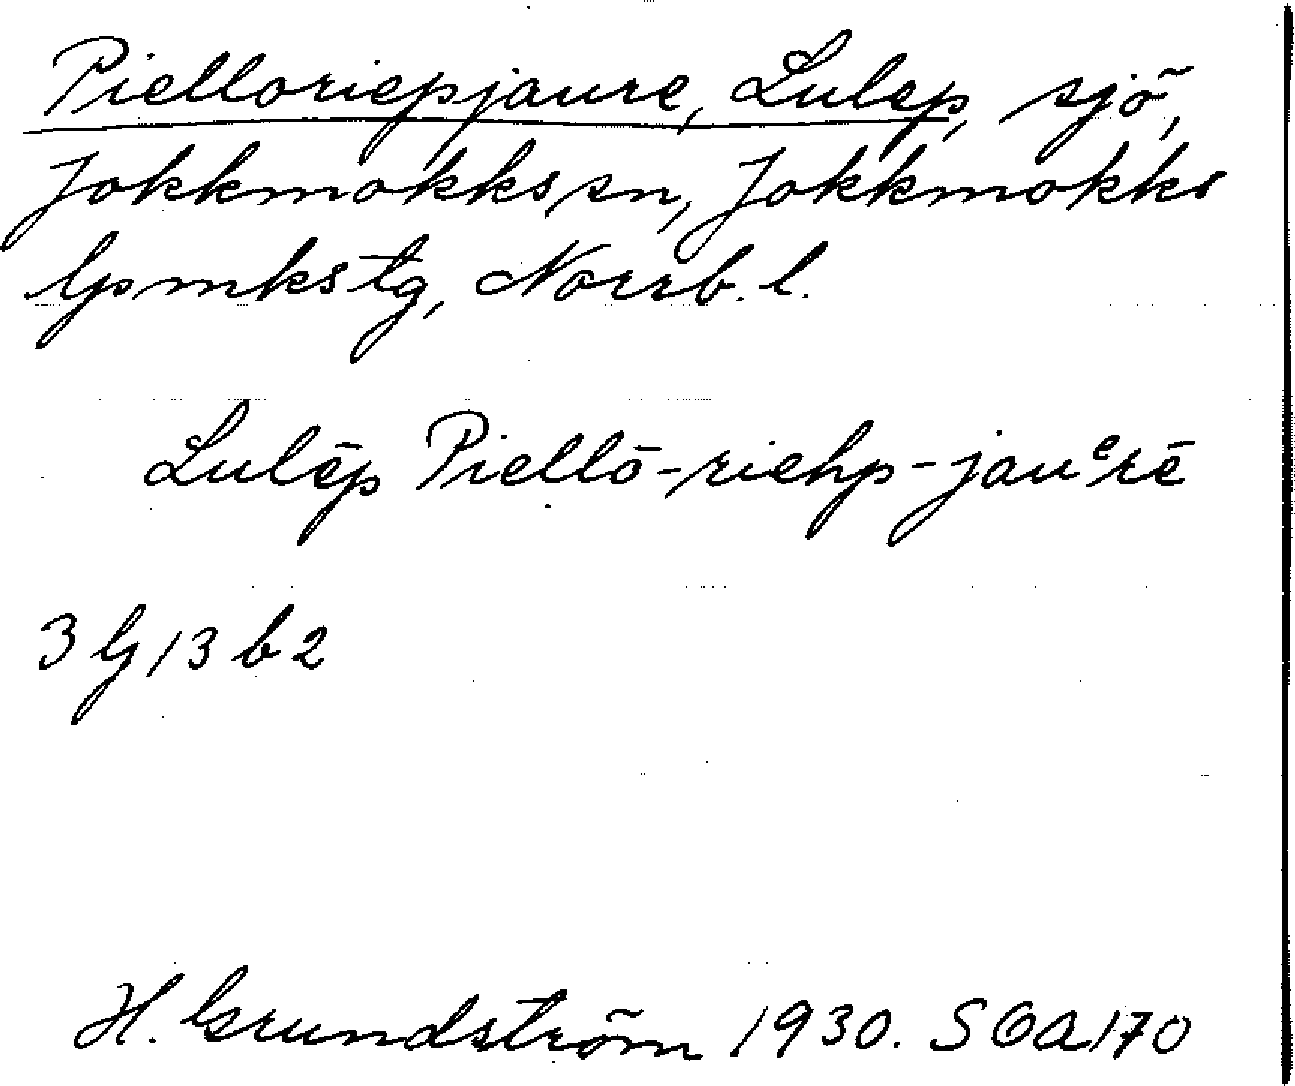 Pielloriepjaure, Lulep, sjö,
Jokkmokks sn, Jokkmokks
lpmkstg, Norrb. l.
Lulēp Piellō-riehp-jauᵉrē
3 G 13 b 2
H. Grundström 1930. SOA 170